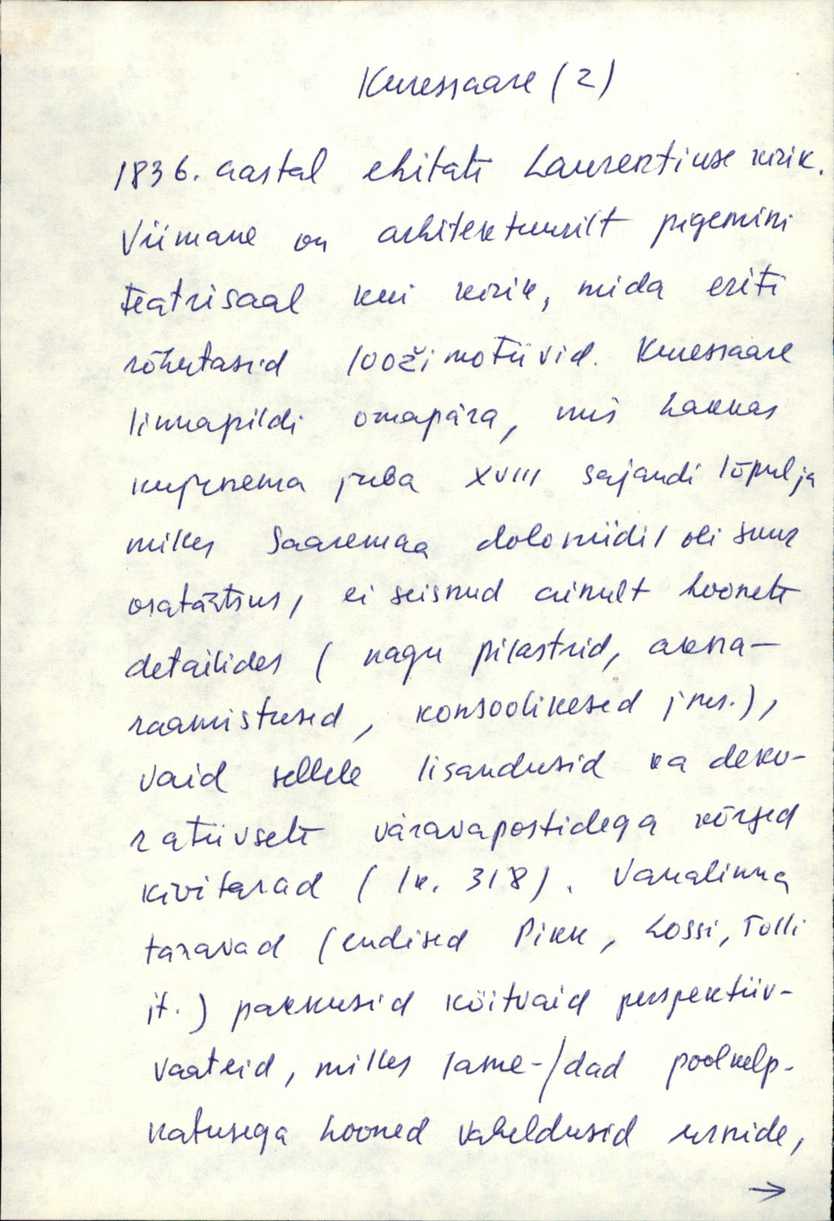 Kuressaare (2)
1836. aastal ehitati Laurentiuse kirik.
Viimane on arhitektuurilt pigemini
teatrisaal kui kirik, mida eriti
rõhutasid looži motiivid. Kuressaare
linnapildi omapära, mis hakkas
kujunema juba XVIII sajandi lõpul ja
milles Saaremaa dolomiidil oli suur
osatähtsus, ei seisnud ainult hoonete
detailides (nagu pilastrid, akna-
raamistused, konsoolikesed jms.),
vaid sellele lisandusid ka deko-
ratiivsete väravapostidega kõrged
kivitarad (lk. 318). Vanalinna
tänavad (endised Pikk, Lossi, Tolli
jt.) pakkusid köitvaid perspektiiv-
vaateid, milles lame-/dad poolkelp-
katusega hooned vaheldusid urnide,
→